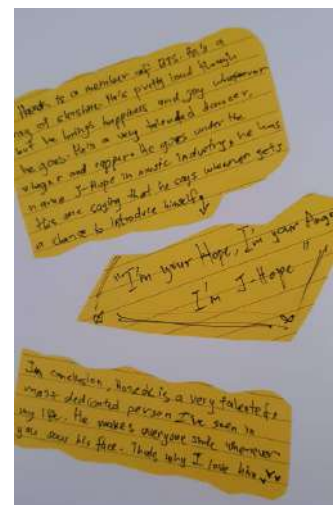 is a member of BTS. He's a
ray of sunshine. He's pretty loud though
but he brings happiness and joy wherever
he goes. He's a very talented dancer,
singer and rapper. He goes under the
name J-Hope in music industry, he has
this one saying that he says whenever gets
a chance to introduce himself
"I'm your Hope, I'm your
I'm J-Hope"
In conclusion, Hoseok is a very talented &
most dedicated person I've seen in
my life. He makes everyone smile whenever
you see his face. Thats why I love him